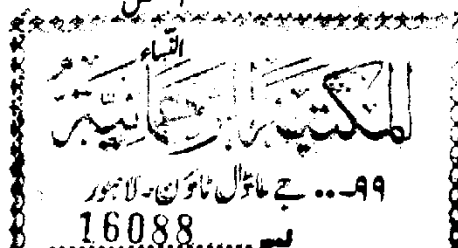 النساء
المكتبة الرحمانية
۹۹... جے ماڈل ٹاؤن - لاہور
16088